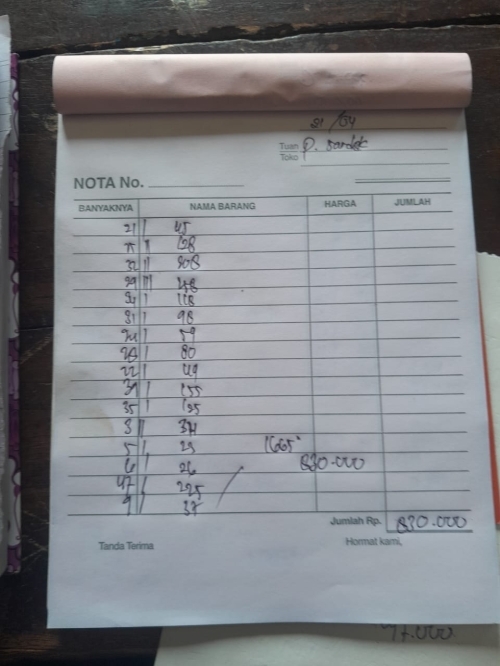 21/34
Tuan P.
Toko
NOTA No.
BANYAKNYA NAMA BARANG HARGA JUMLAH
21 | 45
|| 128
32 ||| 208
29 |||
| 118
31 | 98
| 59
| 80
22 | 49
| 155
35 | 125
3 || 34
5 | 23 1665
6 | 26 830.000
47 | 225
9 | 37
Jumlah Rp. 830.000
Tanda Terima Hormat kami,
47.000